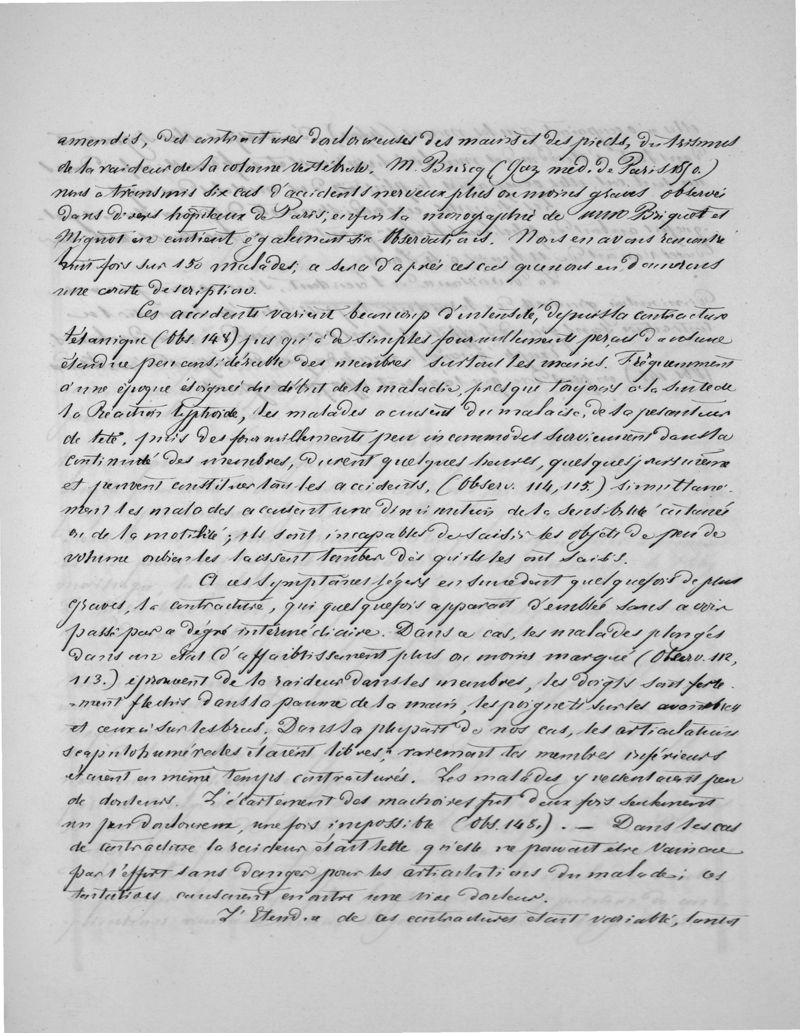 amendés, des contractures douloureuses des mains et des pieds, du trismus
de la raideur de la colonne vertébrale. M. Burcq (Gaz. med. de Paris 1850.)
nous a transmis six cas d'accidents nerveux plus ou moins graves observés
dans divers hôpitaux de Paris; enfin la monographie de MM. Briquet et
Mignot en contient également six observations. Nous en avons rencontré
huit fois sur 150 malades; ce sera d'après ces cas que nous en donnerons
une courte description.
Ces accidents varient beaucoup d'intensité, depuis la contracture
tétanique (Obs. 148) jusqu'à de simples fourmillements perçus dans une
étendue peu considérable des membres surtout les mains. Fréquemment
à une époque éloignée du début de la maladie, presque toujours à la suite de
la Réaction typhoïde, les malades accusent du malaise, de la pesanteur
de tête, puis des fourmillements peu incommodes surviennent dans la
continuité des membres, durent quelques heures, quelques jours même
et peuvent constituer tous les accidents. (Observ. 114, 115.) Simultané-
ment les malades accusent une diminution de la sensibilité cutanée
ou de la motilité; ils sont incapables de saisir les objets de peu de
volume ou bien les laissent tomber dès qu'ils les ont saisis.
A ces symptômes légers en succèdent quelquefois de plus
graves, la contracture, qui quelquefois apparait d'emblée sans avoir
passé par ce dégré intermédiaire. Dans ce cas, les malades plongés
dans un état d'affaiblissement plus ou moins marqué (Observ. 112,
113.) éprouvent de la raideur dans les membres, les doigts sont forte-
ment fléchis dans la paume de la main, les poignets sur les avant-bras
et ceux ci sur les bras. Dans la plupart de nos cas, les articulations
scapulohumérales étaient libres, rarement les membres inférieurs
étaient en même temps contracturés. Les malades y ressentaient peu
de douleurs. L'écartement des machoires fut deux fois seulement
un peu douloureux, une fois impossible (Obs. 148.). — Dans les cas
de contracture la raideur était telle qu'elle ne pouvait être vaincue
par l'effort sans danger pour les articulations du malade; ces
tentatives causaient en outre une vive douleur.
L'Etendue de ces contractures était variable, tantôt